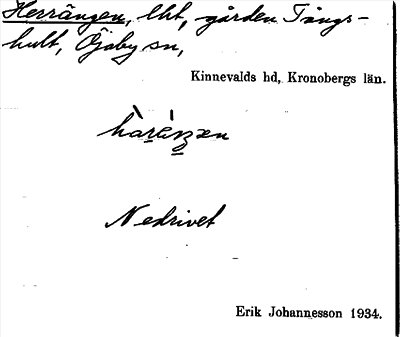 Herrängen, lht, gården Tångs-
hult, Öjaby sn,
Kinnevalds hd, Kronobergs län.
Nedrivet
Erik Johannesson 1934.